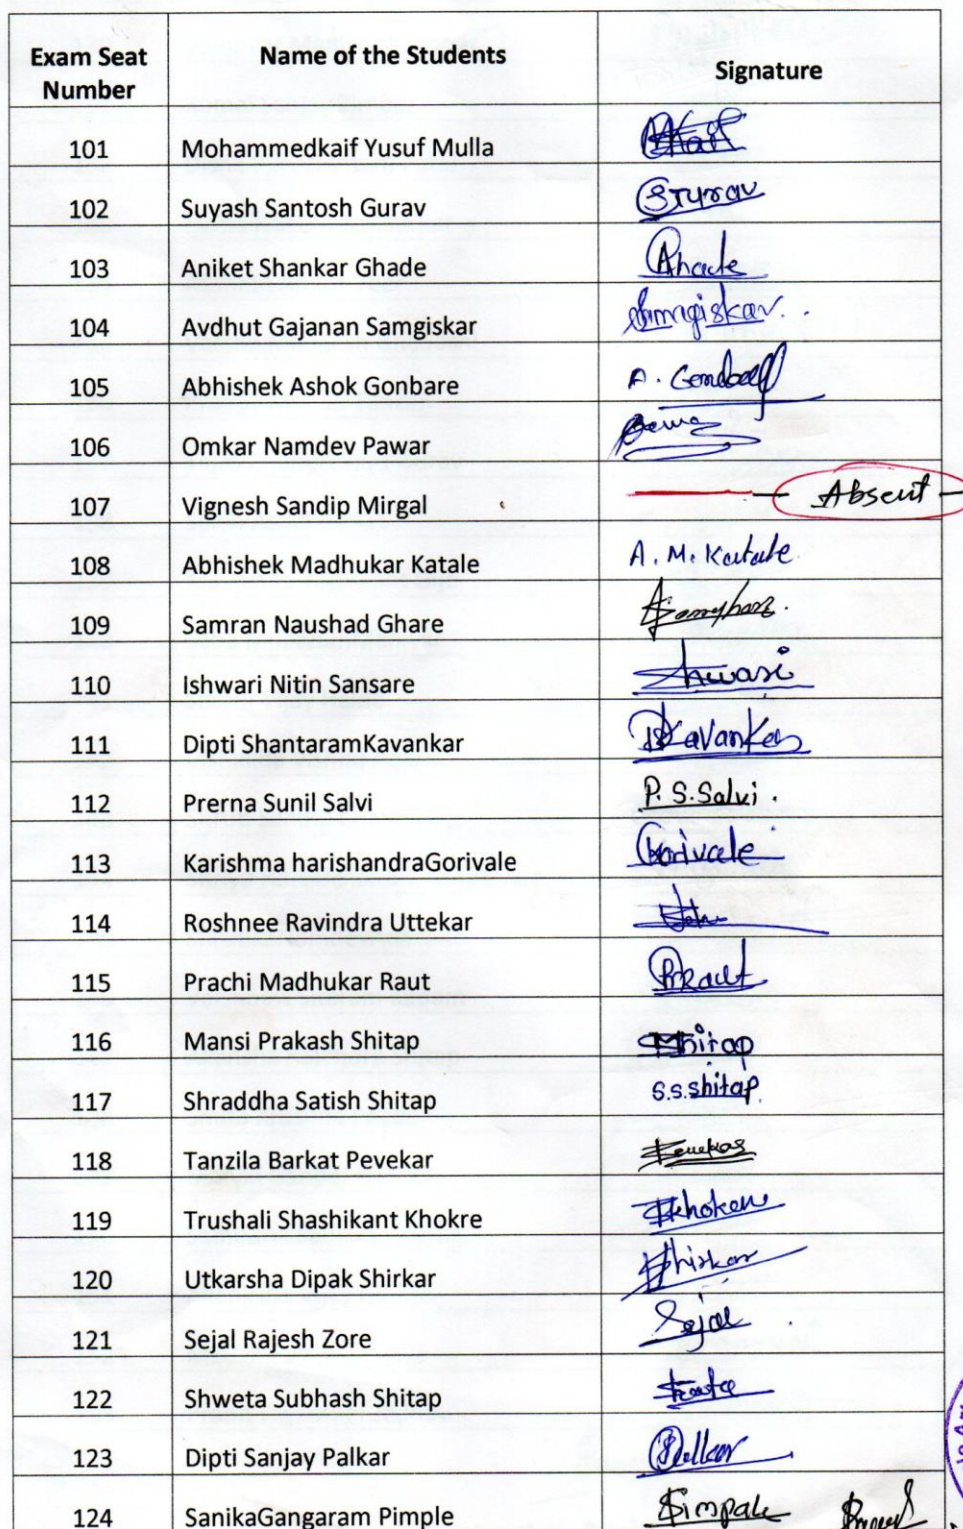 Exam Seat Number Name of the Students Signature
101 Mohammedkaif Yusuf Mulla
102 Suyash Santosh Gurav
103 Aniket Shankar Ghade
104 Avdhut Gajanan Samgiskar
105 Abhishek Ashok Gonbare A.
106 Omkar Namdev Pawar
107 Vignesh Sandip Mirgal Absent
108 Abhishek Madhukar Katale A. M. Katale
109 Samran Naushad Ghare
110 Ishwari Nitin Sansare
111 Dipti ShantaramKavankar
112 Prerna Sunil Salvi P. S. Salvi.
113 Karishma harishandraGorivale Gorivale
114 Roshnee Ravindra Uttekar
115 Prachi Madhukar Raut
116 Mansi Prakash Shitap
117 Shraddha Satish Shitap S.S.Shitap.
118 Tanzila Barkat Pevekar
119 Trushali Shashikant Khokre
120 Utkarsha Dipak Shirkar
121 Sejal Rajesh Zore Sejal
122 Shweta Subhash Shitap
123 Dipti Sanjay Palkar
124 SanikaGangaram Pimple